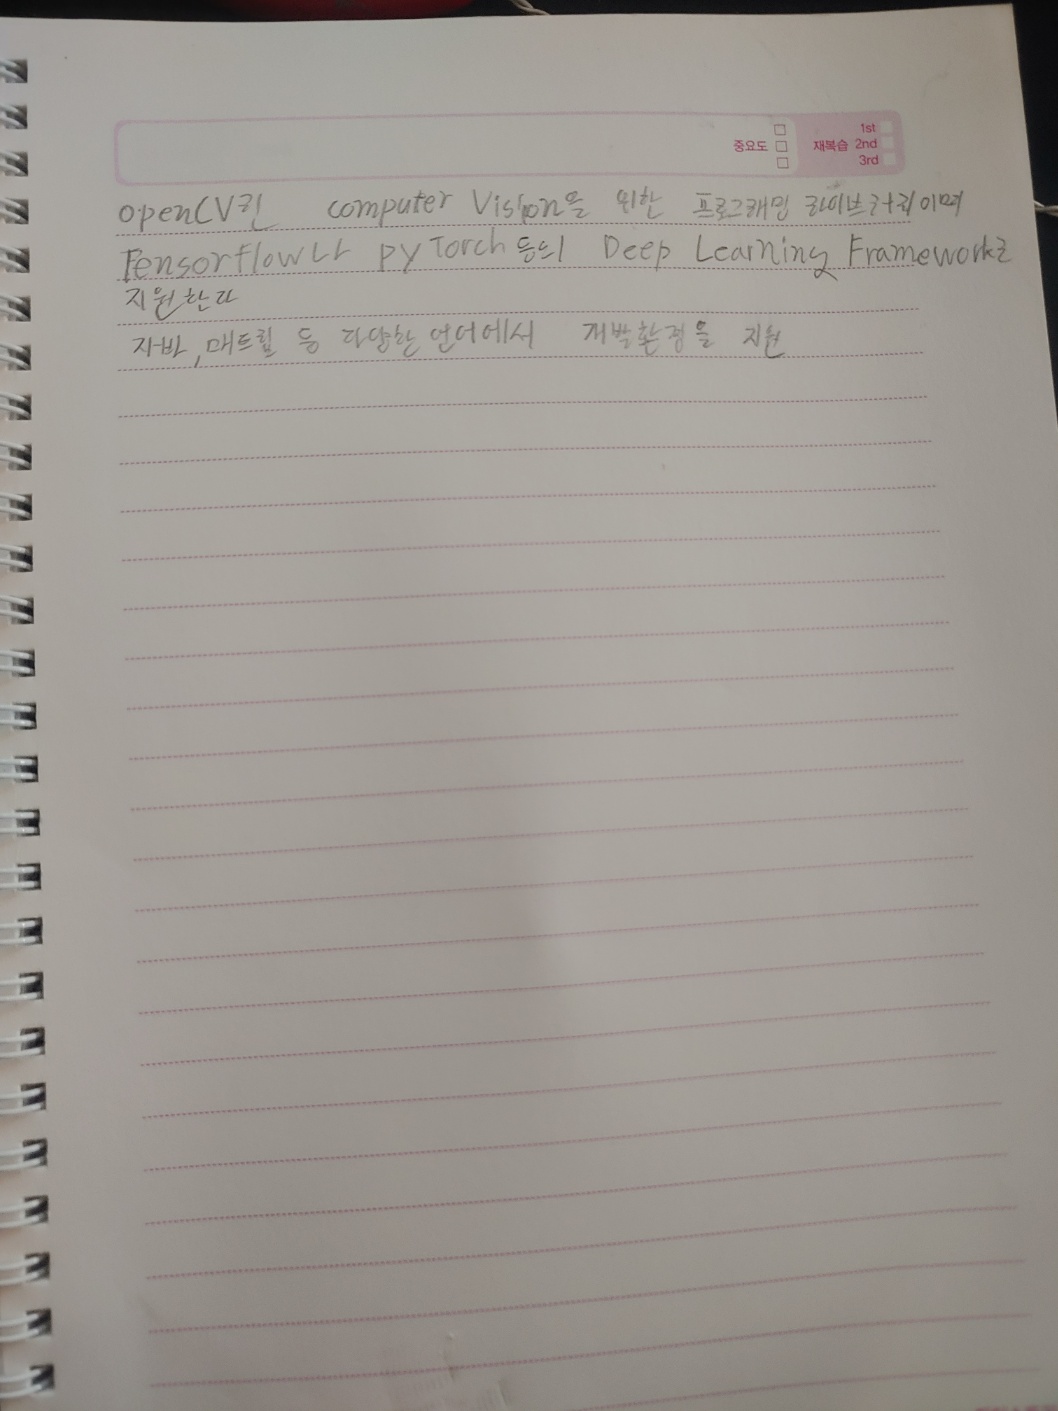 중요도 재복습 1st
2nd
3rd
openCV란 computer Vision을 위한 프로그래밍 라이브러리이며
Tensorflow나 pyTorch등의 Deep Learning Framework를
지원한다
자바, 매트랩 등 다양한 언어에서 개발환경을 지원